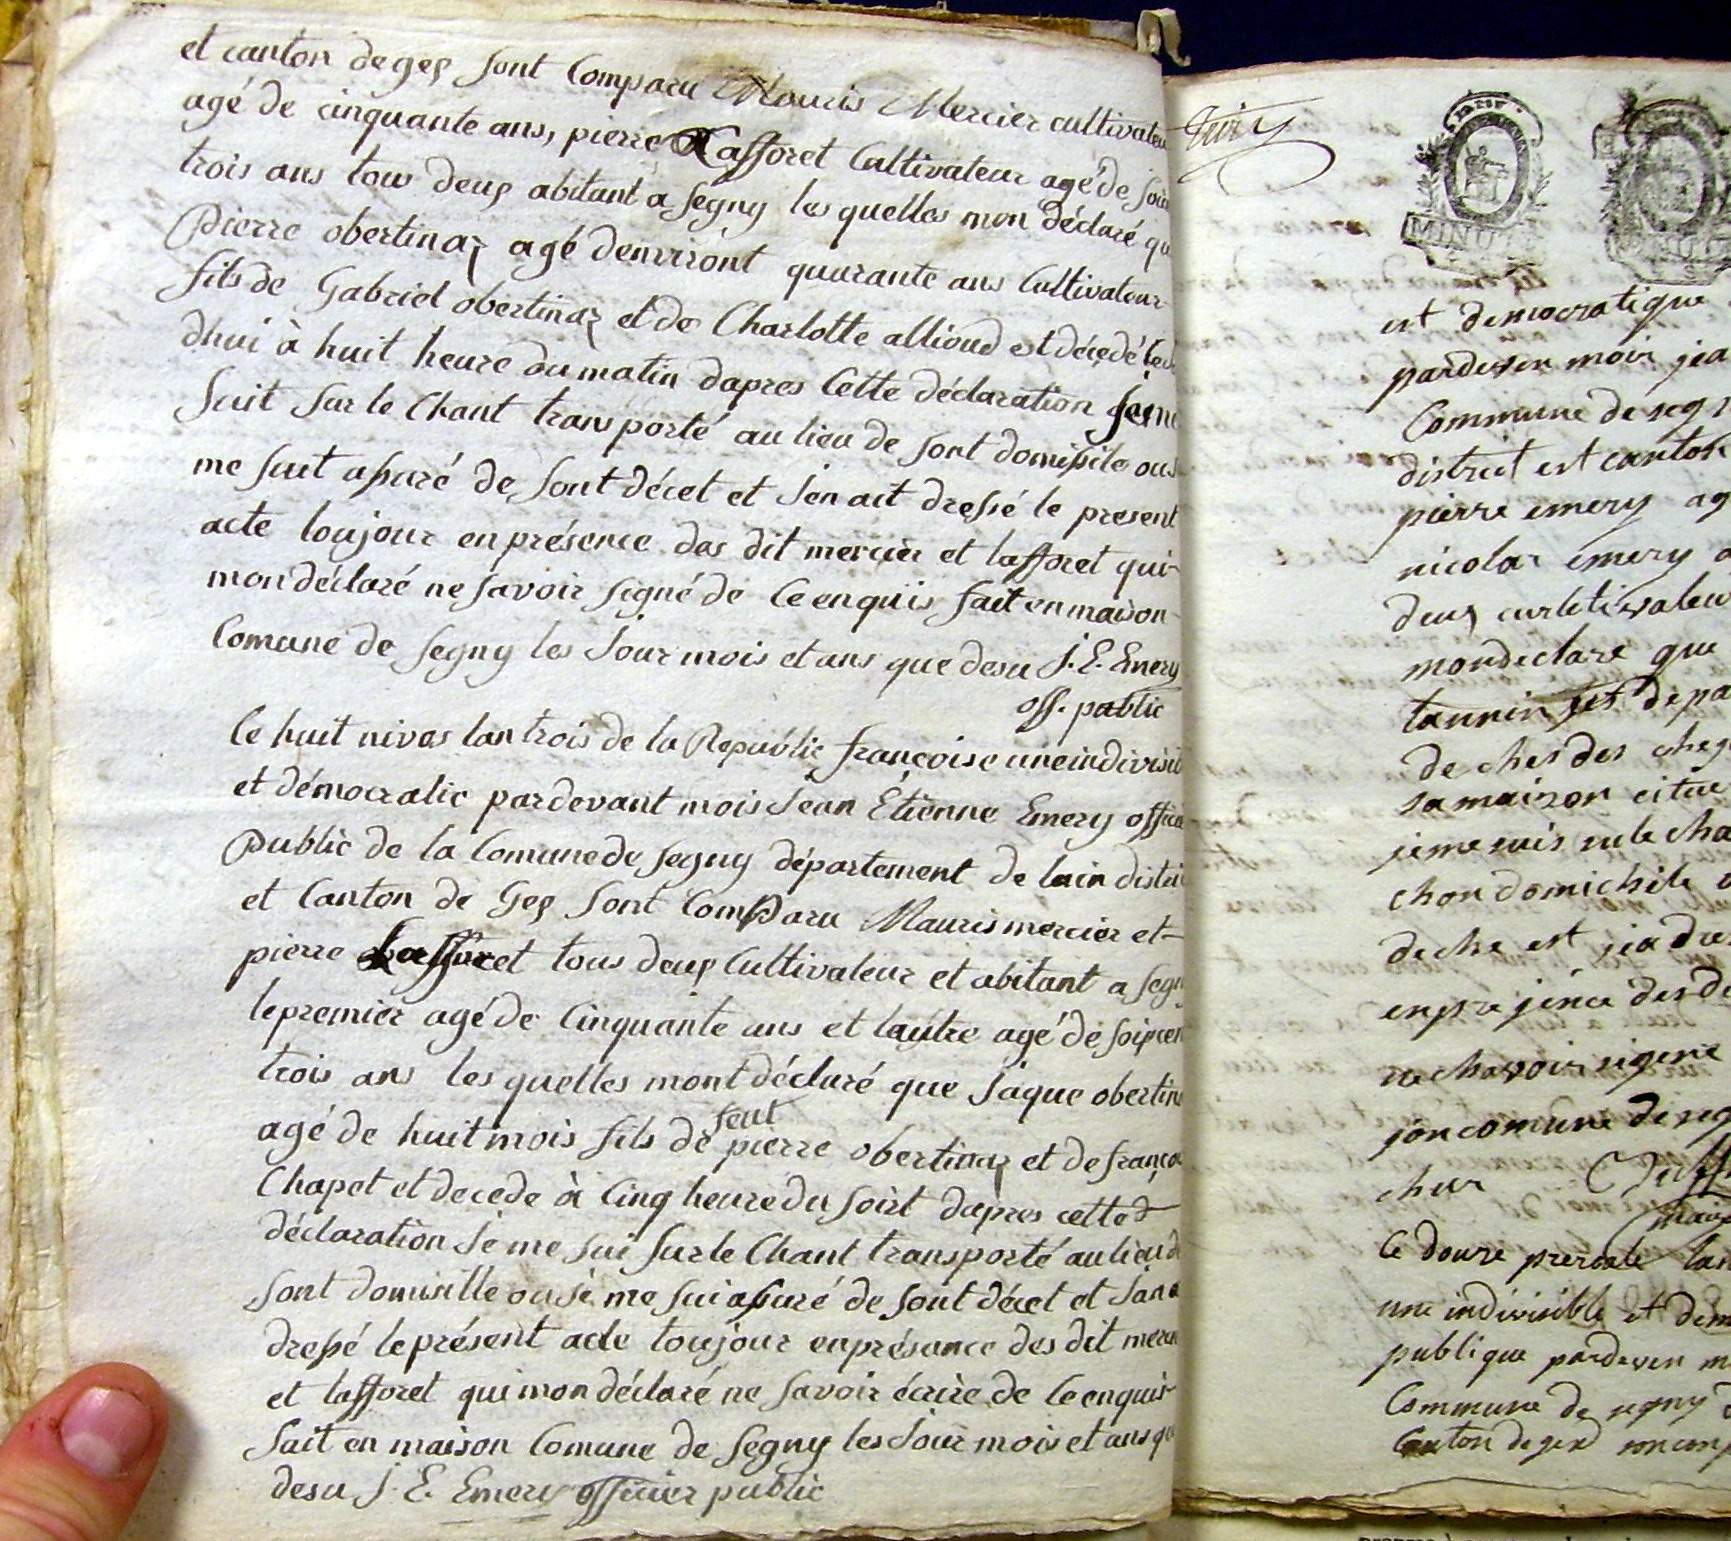 et canton de gex sont Comparu Mouris Mercier cultivateu
agé de cinquante ans, pierre Lafforet Cultivateur agé de soix
trois ans tous deux abitant a segny les quelles mon déclaré qu
pierre obertinaz agé denviront quarante ans Cultivateur
fils de Gabriel obertinaz et de Charlotte allioud et décedé
dhui à huit heure du matin dapres Cette déclaration je me
suit sur le Chant transporté au lieu de sont domisile ou
me suit assuré de sont décet et jen ait dressé le present
acte toujour en présence des dit mercier et lafforet qui
mon déclaré ne savoir segné de Ce enquis fait en maison
Comune de segny les jour mois et ans que desu J. E. Emery
off. public
le huit nivos lan trois de la Republic françoise une indivisi
et démocratic pardevant mois Jean Etienne Emery officie
public de la Comune de segny département de lain distri
et Canton de Gex sont Comparu Mauris mercier et
pierre Lafforet tous deux Cultivateur et abitant a segn
le premier agé de Cinquante ans et lautre agé de soixcen
trois ans les quelles mont déclaré que jaque obertin
agé de huit mois fils de feut pierre obertinaz et de franço
Chapet et decede à Cinq heure du soirt dapres cette d
déclaration je me sui sur le Chant transporté au lieu d
sont domisille ou je me sui assuré de sont décet et jan a
dressé le présent acte toujour en présance des dit merci
et lafforet qui mon déclaré ne savoir écrire de Ce enquis
fait en maison Comune de segny les jour mois et ans qu
desu J. E. Emery officier public
MINUTE
est democratique
pardeven moir jea
Commune de seg
distrect est canton
pierre emery ag
nicolar emery a
deux curletivateu
mondeclare que
de ches des
sa maison citue
je me suis su le cha
chon domichile
deche est jia dre
en pre jence des de
ne chavoir signe
jon comune de seg
chur
le douze prerale lan
une indivisible et dem
publique pardeven m
Commune de segny d
Canton de gex son comp